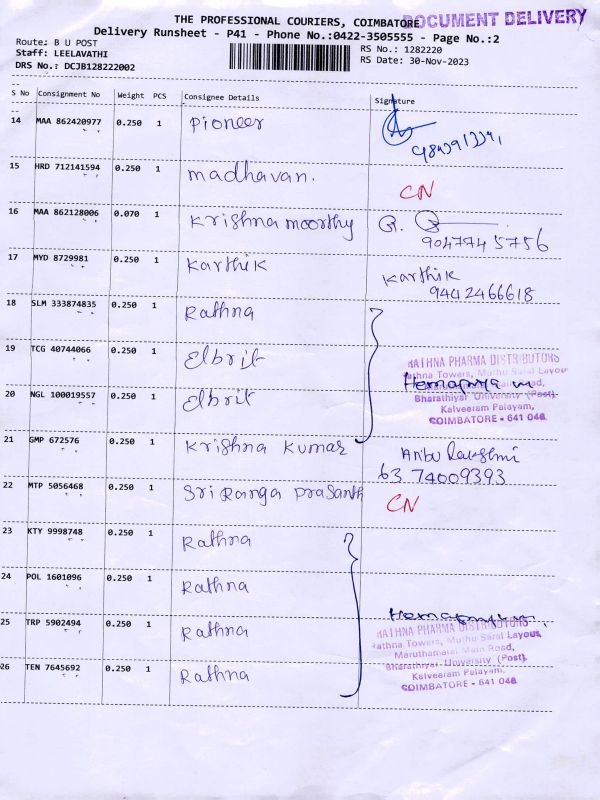 THE PROFESSIONAL COURIERS, COIMBATORE
DOCUMENT DELIVERY
Delivery Runsheet - P41 - Phone No.:0422-3505555 - Page No.:2
Route: B U POST
RS No.: 1282220
Staff: LEELAVATHI
RS Date: 30-Nov-2023
DRS No.: DCJB128222002
S No Consignment No Weight PCS Consignee Details Signature
14 MAA 862420977 0.250 1 Pioneer
15 HRD 712141594 0.250 1 madhavan. CN
16 MAA 862128006 0.070 1 Krishna moorthy
9047745756
17 MYD 8729981 0.250 1 Karthik Karthik
9442466618
18 SLM 333874835 0.250 1 Rathna
19 TCG 40744066 0.250 1 Elbrit
RATHNA PHARMA DISTRIBUTORS
Rathna Towers, Muthu Saral Layout
20 NGL 100019557 0.250 1 Elbrit
Bharathiyar University (Post),
Kalveeram Palayam,
COIMBATORE - 641 046.
21 GMP 672576 0.250 1 Krishna Kumar
63 74009393
22 MTP 5056468 0.250 1 Sri Ranga Prasanth CN
23 KTY 9998748 0.250 1 Rathna
24 POL 1601096 0.250 1 Rathna
25 TRP 5902494 0.250 1 Rathna
RATHNA PHARMA DISTRIBUTORS
Rathna Towers, Muthu Saral Layout,
Maruthamalai Main Road,
Bharathiyar University (Post),
26 TEN 7645692 0.250 1 Rathna
Kalveeram Palayam,
COIMBATORE - 641 046.